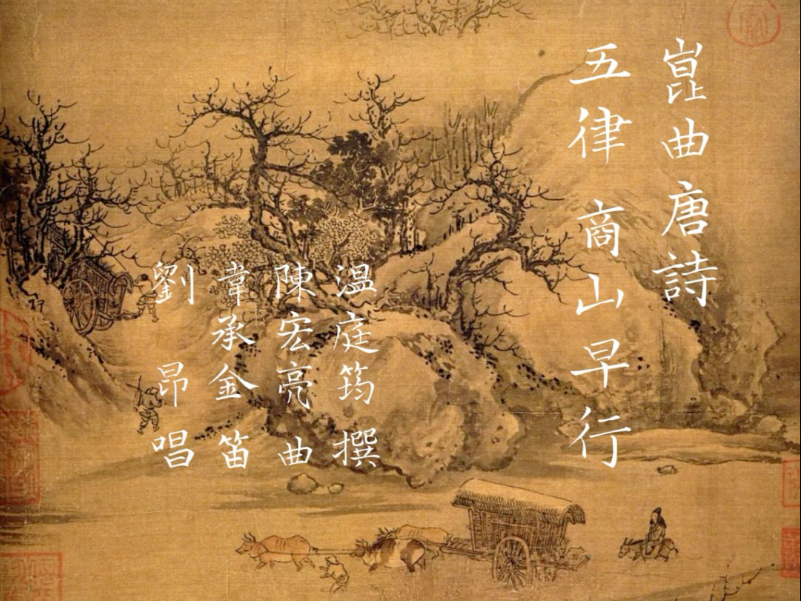 崑曲唐詩
五律 商山早行
温庭筠 撰
陳宏亮 曲
韋承金 笛
劉昂 唱